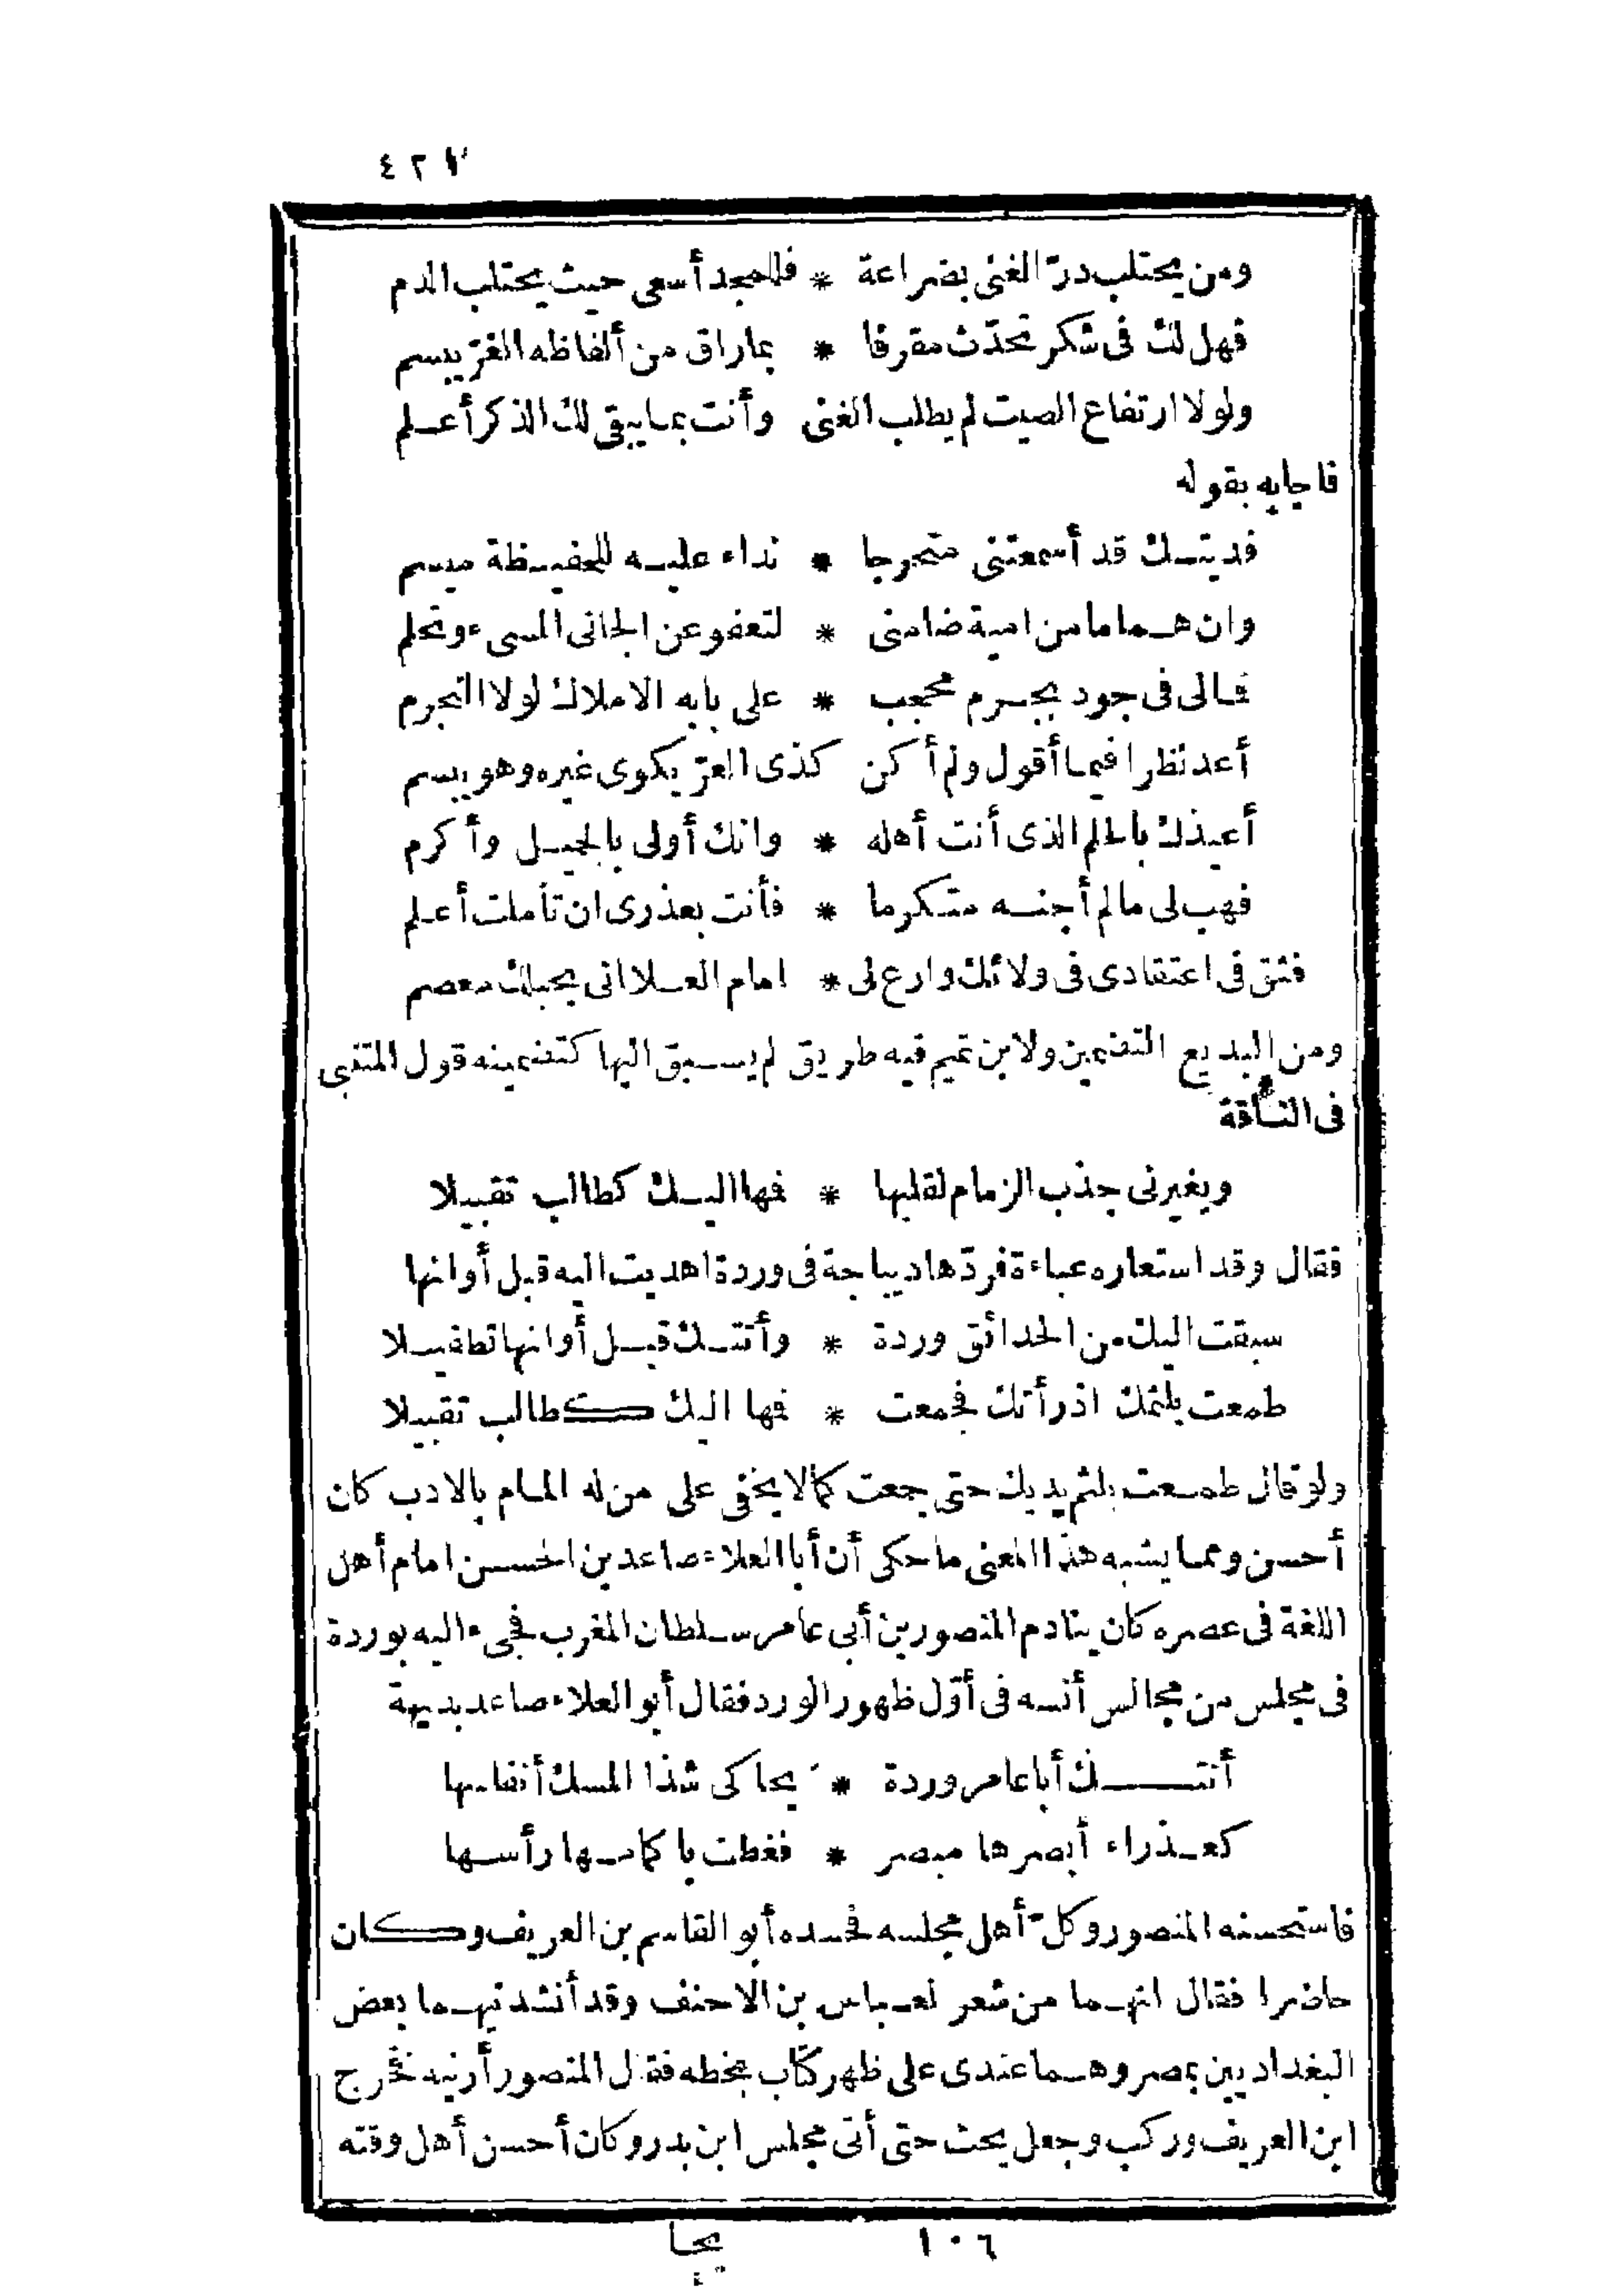 ٤٢١
ومن يحتلب درّ الغنى بضراعة * فللمجد أسعى حيث يحتلب الدم
فهل لك فى شكر تحدّث مقرفا * بماراق من ألفاظه الغرّ يبسم
ولولا ارتفاع الصيت لم يطلب الغنى وأنت بما يبقى لك الذكر أعلم
فاجابه بقوله
فديتك قد أسمعتنى متحرجا * نداء عليه للحفيظة ميسم
وان هماما من امية ضامنى * لتعفو عن الجانى المسىء وتحلم
فمالى فى جود بجرم محجب * على بابه الاملاك لولا التجرم
أعد نظرا فيما أقول ولم أكن كذى العرّ يكوى غيره وهو يبسم
أعيذك بالحلم الذى أنت أهله * وانك أولى بالجميل وأكرم
فهب لى مالم أجنه متكرما * فأنت بعذرى ان تأملت أعلم
فثق فى اعتقادى فى ولائك وارع لى * امام العلا انى بحبلك معصم
ومن البديع التضمين ولابن تميم فيه طريق لم يسبق اليها كتضمينه قول المتنبى
فى الناقة
ويغيرنى جذب الزمام لقلبها * فها اليك كطالب تقبيلا
فقال وقد استعاره عباءة فردّها ديباجة فى وردة اهديت اليه قبل أوانها
سبقت اليك من الحدائق وردة * وأتتك قبل أوانها تطفيلا
طمعت بلثمك اذ رأتك فجمعت * فها اليك كطالب تقبيلا
ولو قال طمعت بلثم يديك حتى جمعت كمالا يخفى على من له المام بالادب كان
أحسن ومما يشبه هذا المعنى ما حكى أن أبا العلاء صاعد بن الحسن امام أهل
اللغة فى عصره كان ينادم المنصور بن أبى عامر سلطان المغرب فجىء اليه بوردة
فى مجلس من مجالس أنسه فى أوّل ظهور الورد فقال أبو العلاء صاعد بديهة
أتتك أبا عامر وردة * يحاكى شذا المسك أنفاسها
كعذراء أبصرها مبصر * فغطت باكمامها رأسها
فاستحسنه المنصور وكلّ أهل مجلسه فحسده أبو القاسم بن العريف وكان
حاضرا فقال انهما من شعر لعباس بن الاحنف وقد أنشدنيهما بعض
البغداديين بمصر وهما عندى على ظهر كتاب بخطه فقال المنصور أرنيه فخرج
ابن العريف وركب وجعل يحث حتى أتى مجلس ابن بدر وكان أحسن أهل وقته
١٠٦